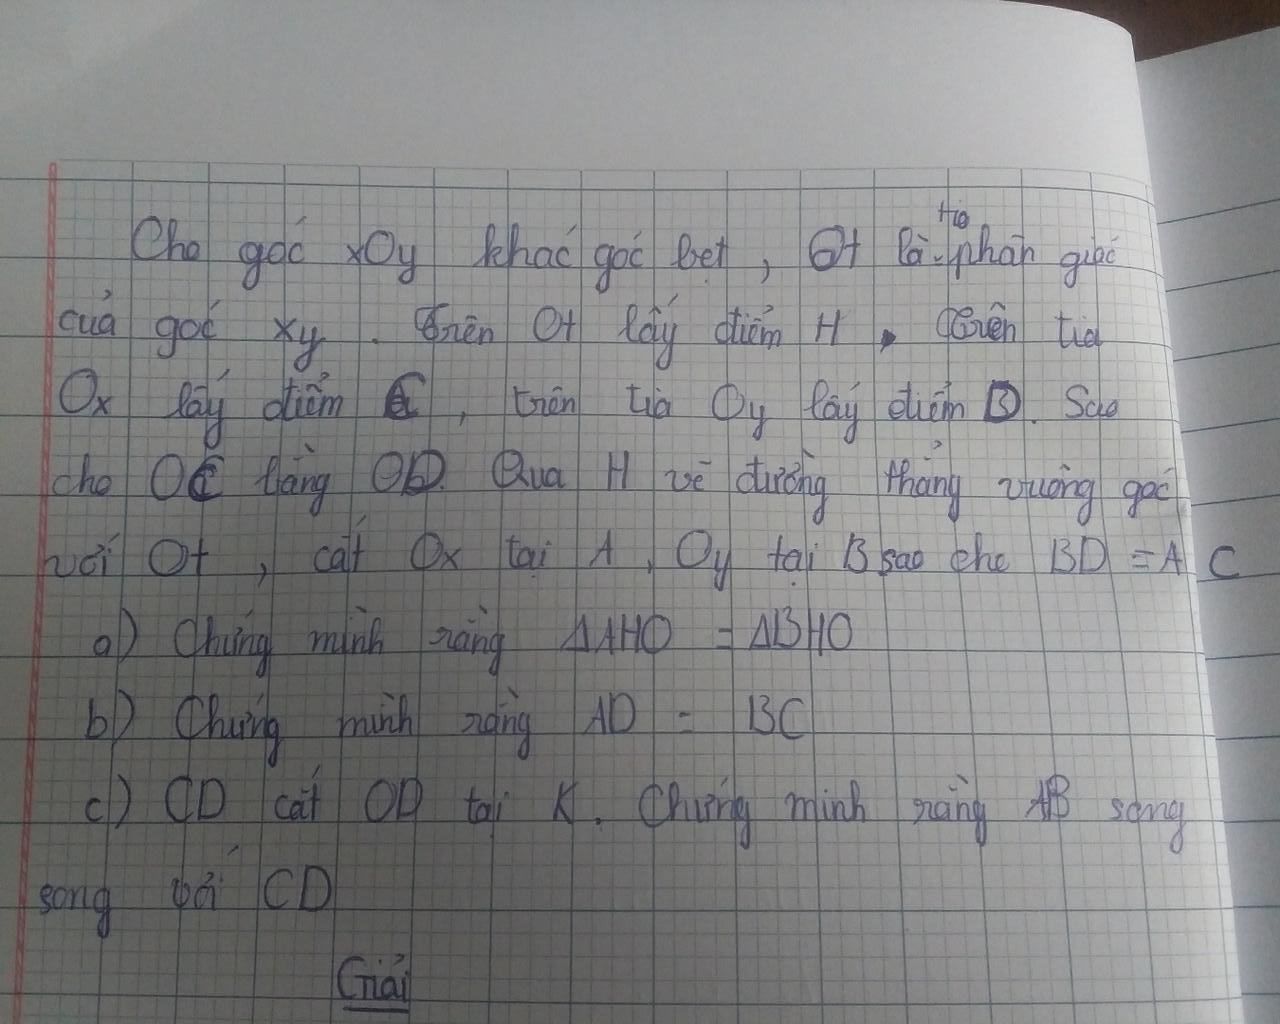 Cho góc xOy khác góc bẹt, Ot là tia phân giác
của góc xy. Trên Ot lấy điểm H, trên tia
Ox lấy điểm C, trên tia Oy lấy điểm D. Sao
cho OC bằng OD. Qua H vẽ đường thẳng vuông góc
với Ot, cắt Ox tại A, Oy tại B sao cho BD = AC
a) Chứng minh rằng ΔAHO = ΔBHO
b) Chứng minh rằng AD = BC
c) CD cắt OD tại K. Chứng minh rằng AB song
song với CD
Giải